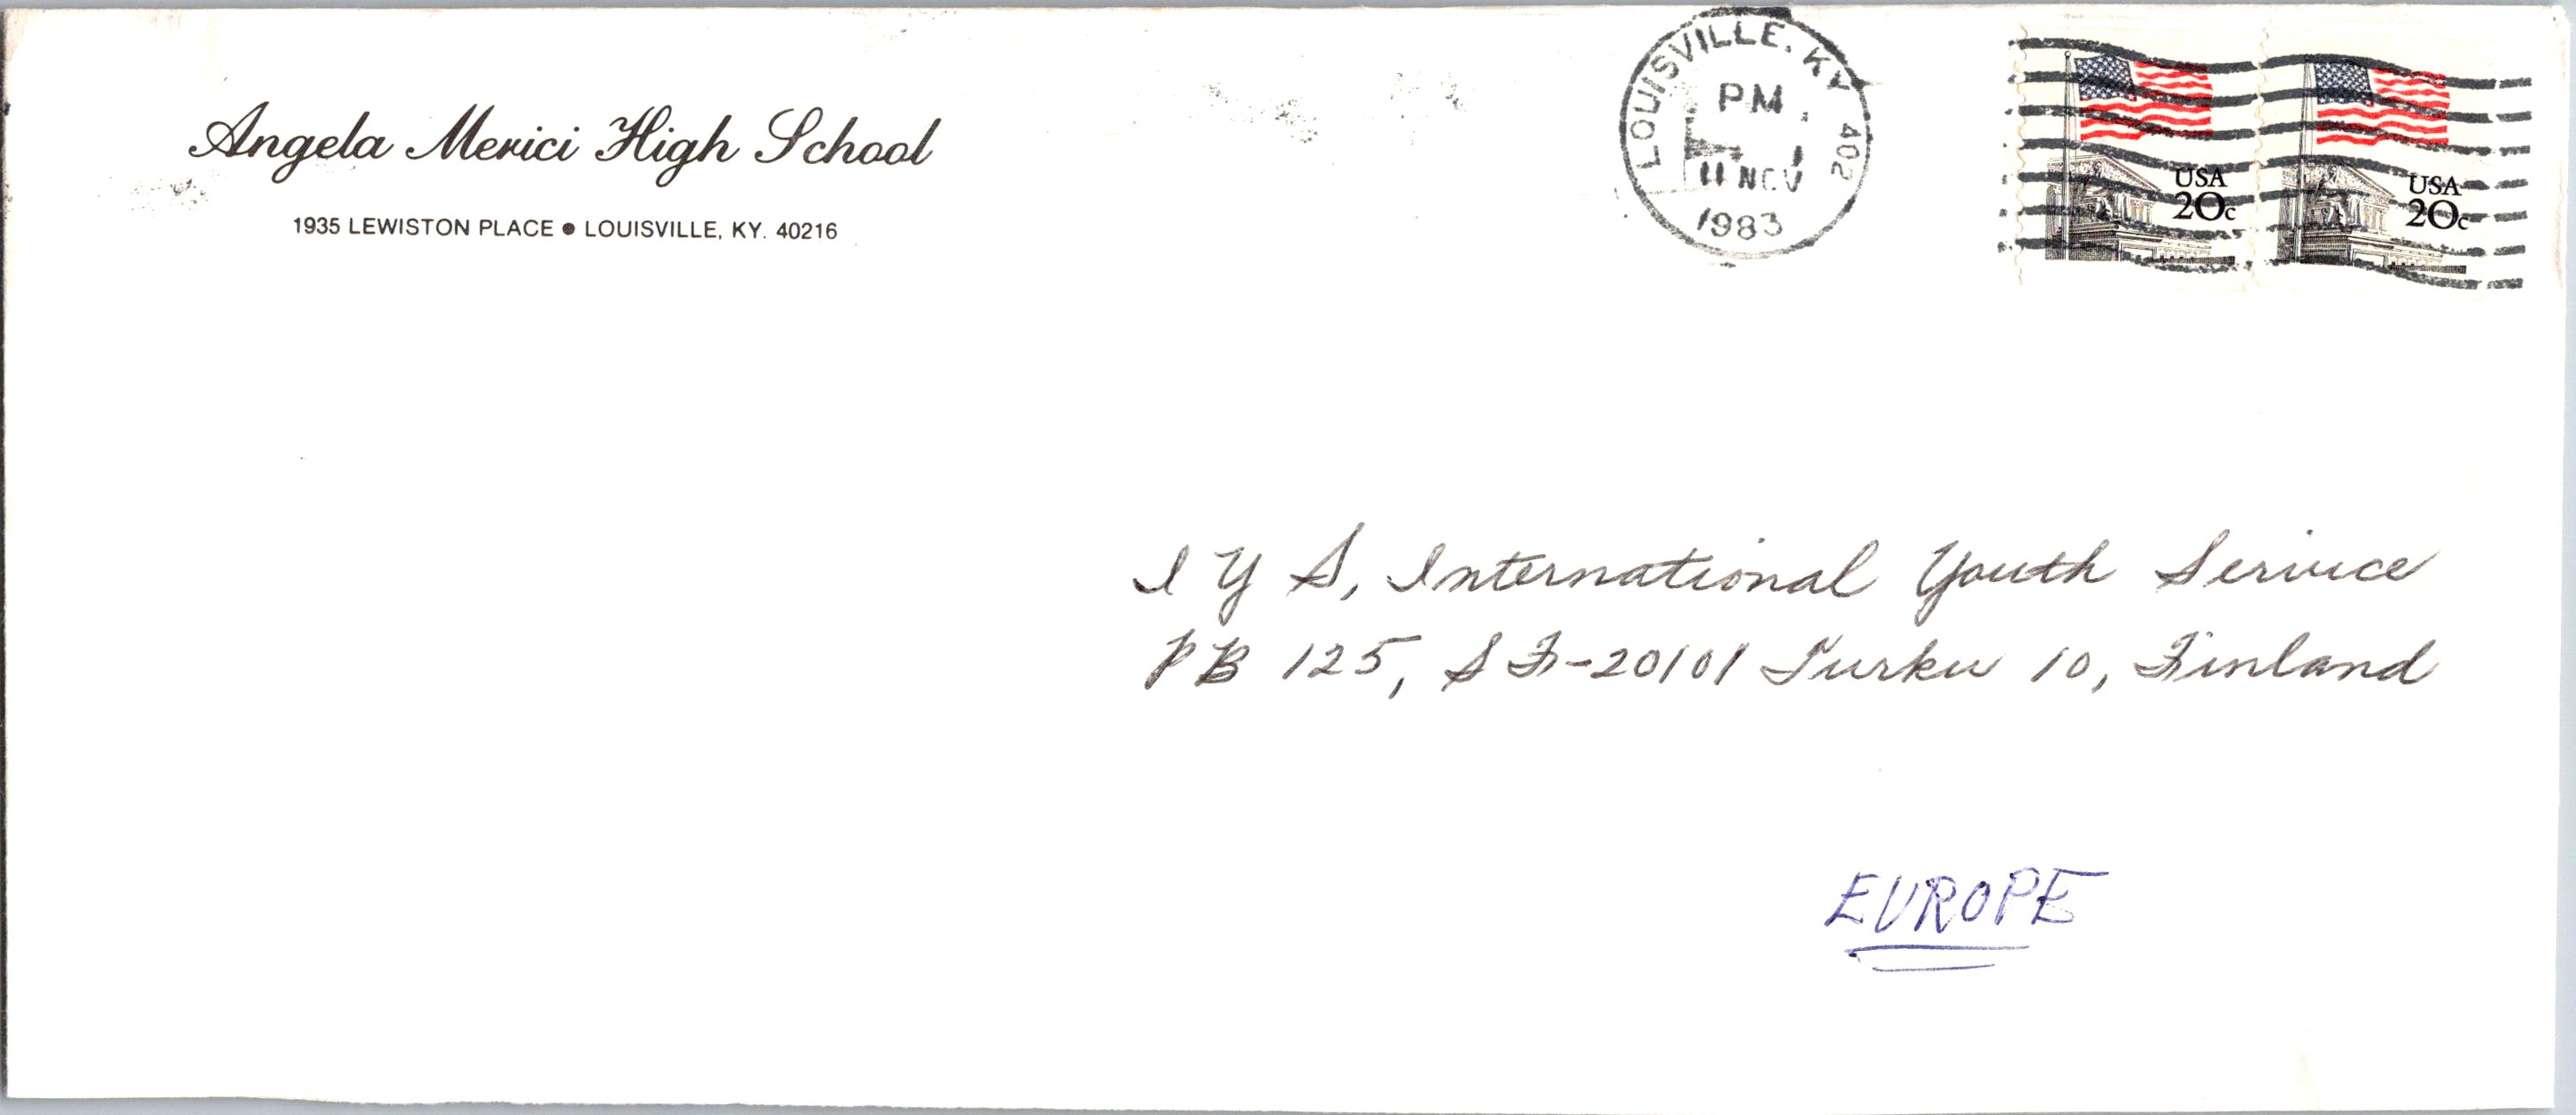 Angela Merici High School
1935 LEWISTON PLACE ● LOUISVILLE, KY. 40216
LOUISVILLE, KY 402
PM
11 NOV
1983
USA
20c
USA
20c
I Y S, International Youth Service
PB 125, SF-20101 Turku 10, Finland
EUROPE